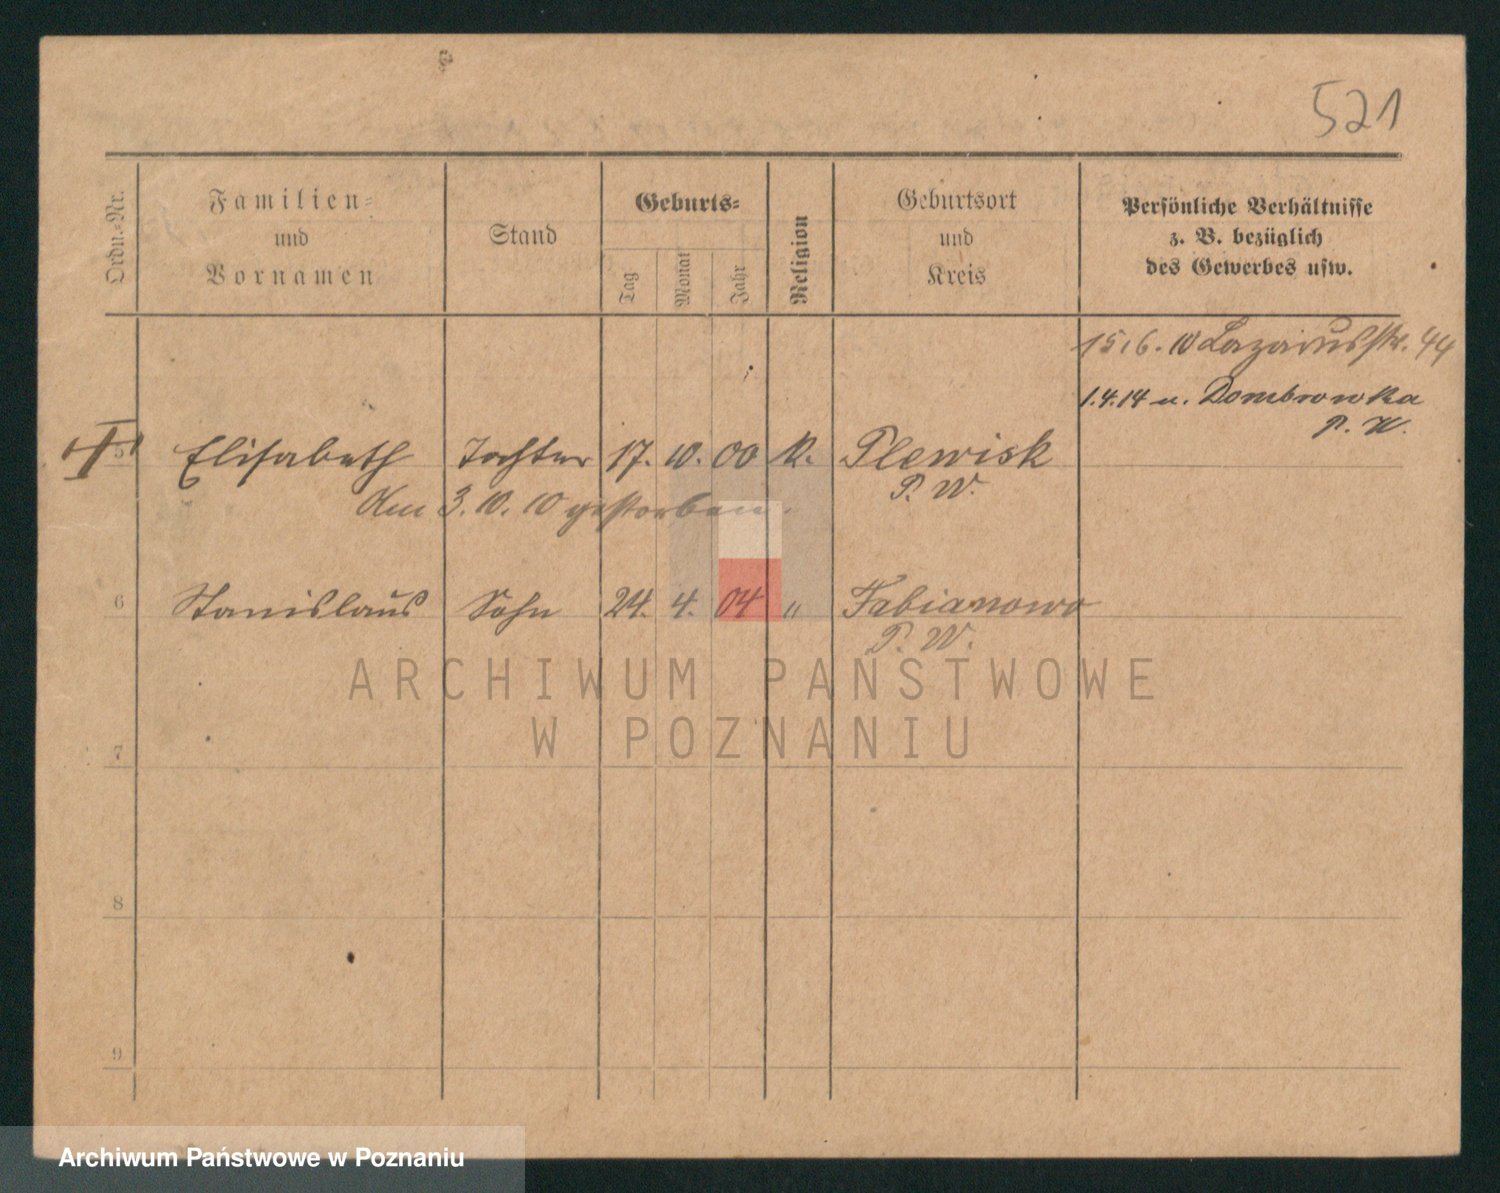 521
Ordn.-Nr.
Familien-
und
Vornamen
Stand
Geburts-
Tag
Monat
Jahr
Religion
Geburtsort
und
Kreis
Persönliche Verhältnisse
z. B. bezüglich
des Gewerbes usw.
15.6.10 Lazarusstr. 44
1.4.14 n. Dombrowka
P. W.
5 Elisabeth Tochter 17. 10. 00 K. Plewisk
P. W.
Am 3. 10. 10 gestorben.
6 Stanislaus Sohn 24. 4. 04 " Fabianowo
P. W.
ARCHIWUM PAŃSTWOWE
W POZNANIU
7
8
9
Archiwum Państwowe w Poznaniu